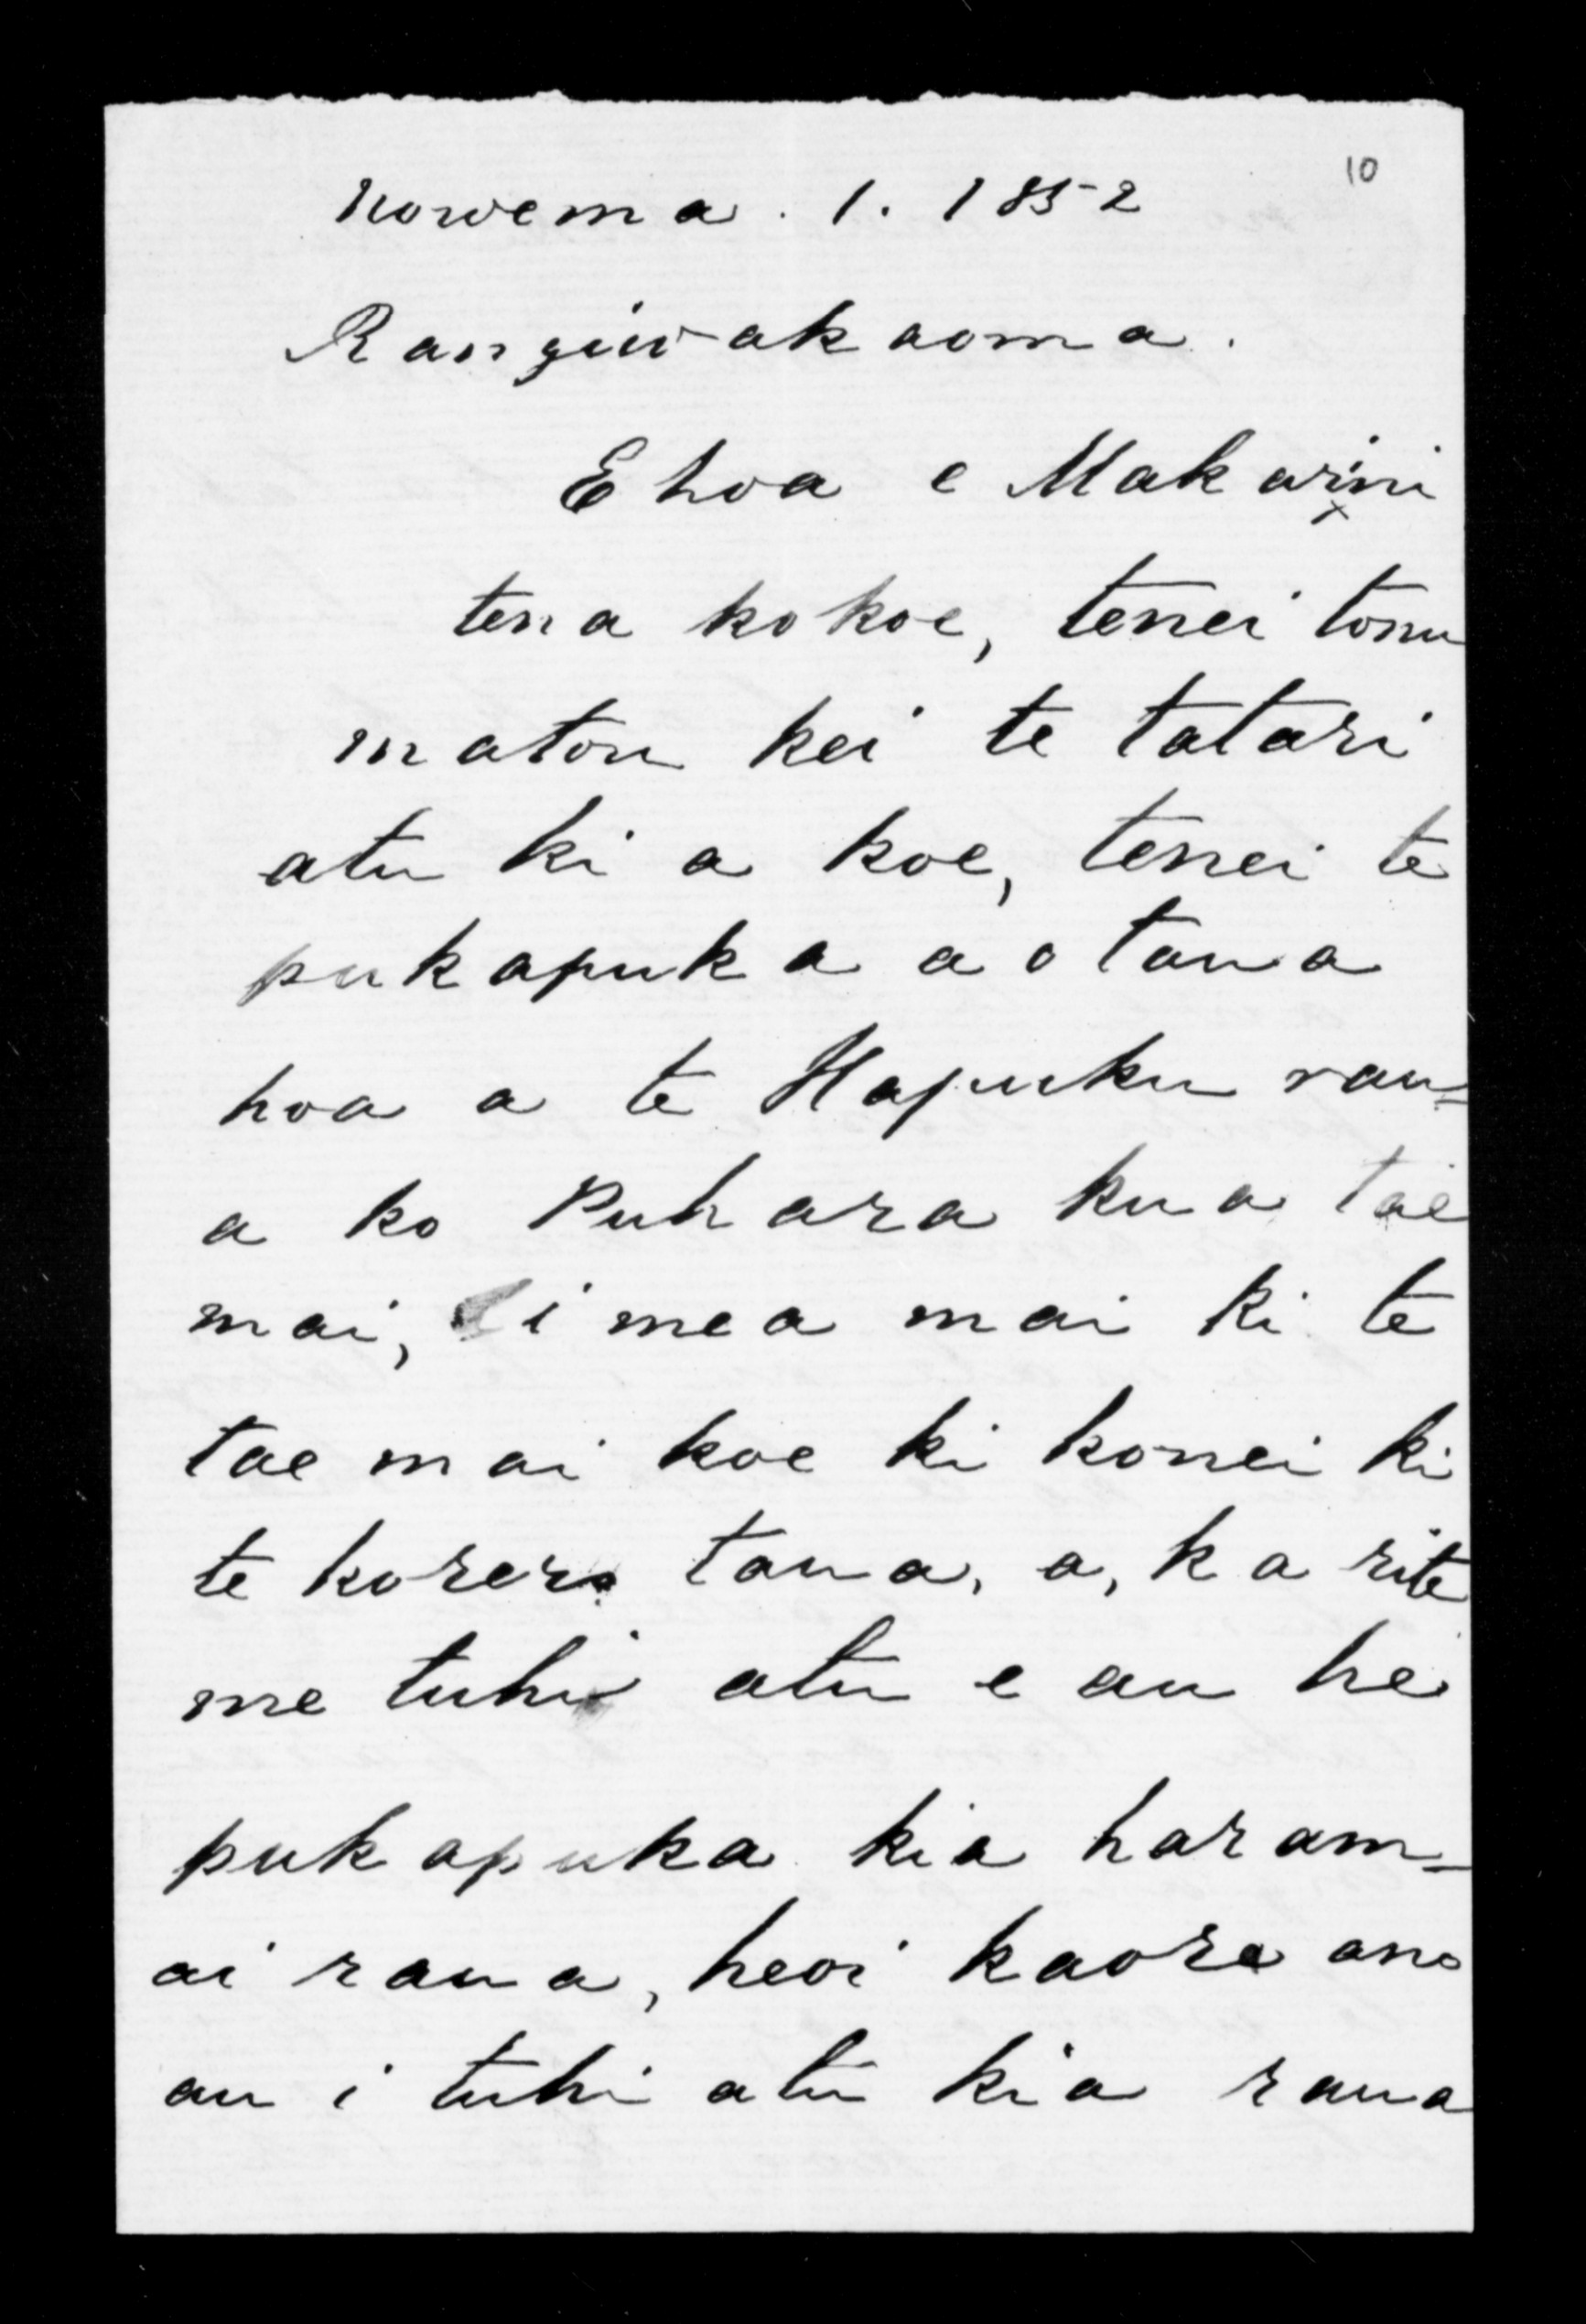 10
Nowema. 1. 1852
Rangiwakaoma.
E hoa e Makarini
tena ko koe, tenei tonu
matou kei te tatari
atu ki a koe, tenei te
pukapuka a o taua
hoa a te Hapuku rau=
a ko Puhara kua tae
mai, i mea mai ki te
tae mai koe ki konei ki
te korero taua, a, ka rite
me tuhi atu e au he
pukapuka kia haram=
ai raua, heoi kaore ano
au i tuhi atu kia raua